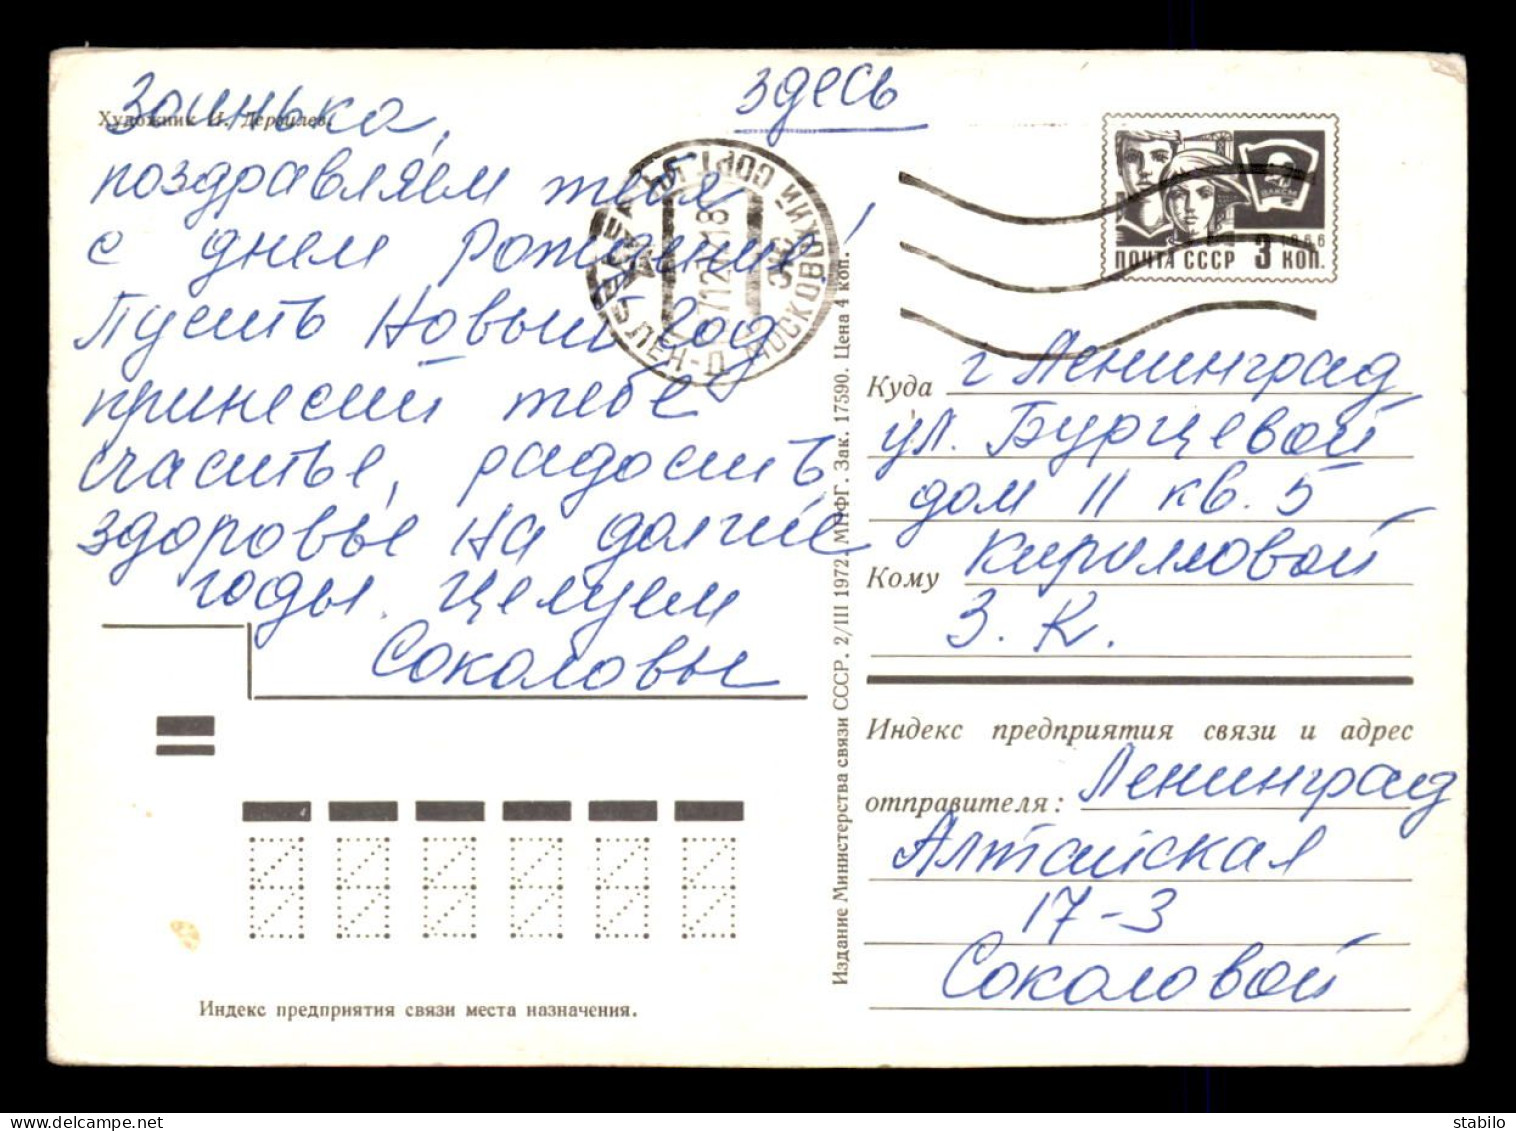 Художник И. Дергилев.
Заинька,
поздравляем тебя
с днем рождения!
Пусть Новый год
принесет тебе
счастье, радость
здоровье на долгие
годы. Целуем
Соколовы
здесь
ПОЧТА СССР 3 КОП.
1966
ВЛКСМ
ЛЕН-Д МОСКОВСКИЙ СОРТ.
Куда г Ленинград
ул. Бурцевой
дом 11 кв. 5
Кому Кирилловой
З. К.
Индекс предприятия связи и адрес
отправителя: Ленинград
Алтайская
17-3
Соколовой
Издание Министерства связи СССР. 2/III 1972. МПФГ. Зак. 17590. Цена 4 коп.
Индекс предприятия связи места назначения.
stabilo